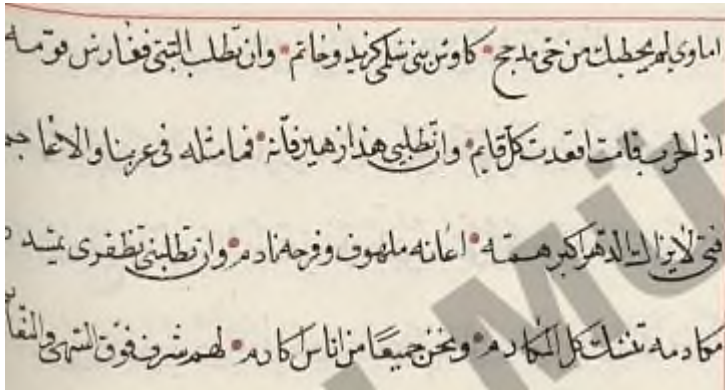 اماوى لم يخطبك من حى مدحج كاوس بنى سلمى كزيد وخاتم وان تطلب التبتى ففارس قومه
اذ الحرب قامت اقعدت كل قايم وان تطلبى هذا زهير فانه فما مثله فى عربنا والاعاجم
فتى لا يزال الدهر اكبر همته اعانه ملهوف وفرحه نادم وان تطلبنى تظفرى
مكارمه تنسك كل المكارم ونحن جميعا من اناس اكارم لهم شرف فوق السهى
MÜ